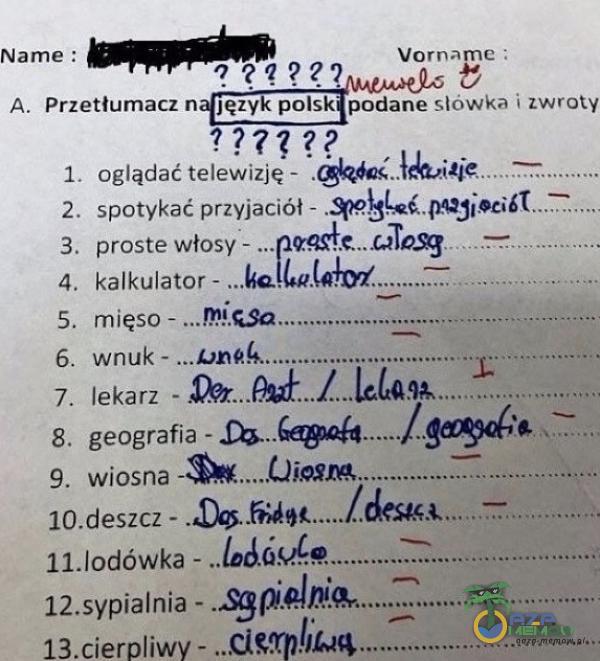 Name : Vorname :
? ? ? ? ? ?
A. Przetłumacz na język polski podane słówka i zwroty
? ? ? ? ? ?
1. oglądać telewizję - oglądać telewizję —
2. spotykać przyjaciół - spotykać przyjaciół —
3. proste włosy - proste włosy —
4. kalkulator - kalkulator —
5. mięso - mięso —
6. wnuk - wnuk —
7. lekarz - Der Arzt / lekarz
8. geografia - Das / geografia —
9. wiosna - Wiosna —
10.deszcz - Das / deszcz —
11.lodówka - lodówka —
12.sypialnia - sypialnia —
13.cierpliwy - cierpliwy —